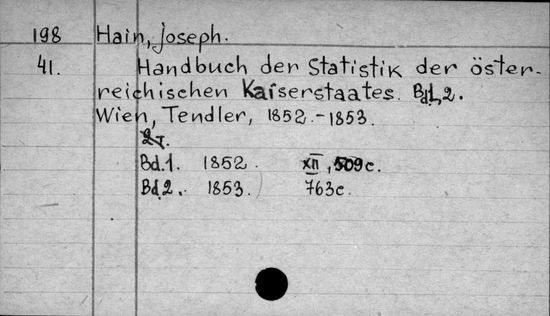 198 Hain, Joseph.
41. Handbuch der Statistik der öster-
reichischen Kaiserstaates. Bd.1,2.
Wien, Tendler, 1852.-1853.
2т.
Bd.1. 1852. XII, 509c.
Bd.2. 1853. 763c.